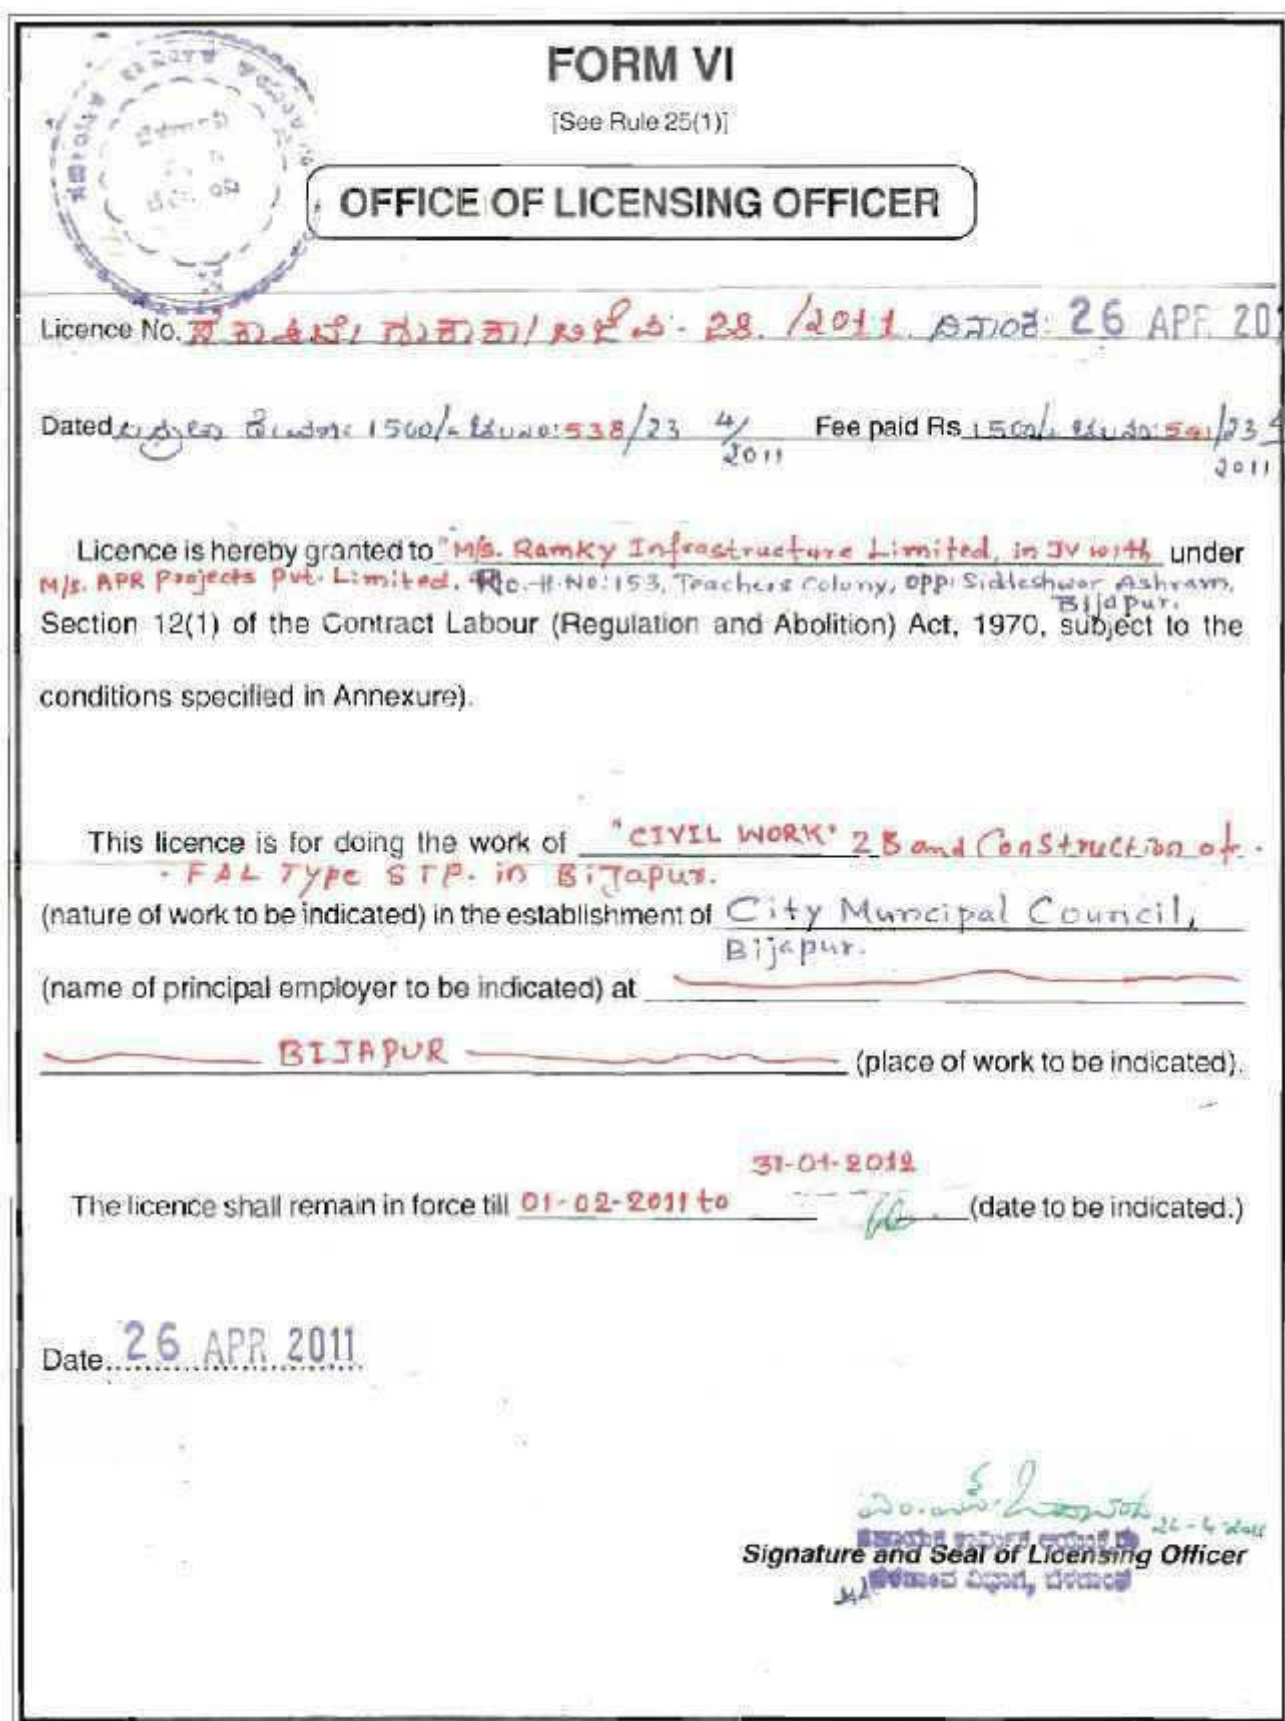 FORM VI
[See Rule 25(1)]
OFFICE OF LICENSING OFFICER
Licence No. - 28. /2011. ದಿನಾಂಕ: 26 APR 20
Dated 1500/- 538/23 4/2011 Fee paid Rs 1500/- 541/23 4
2011
Licence is hereby granted to "M/s. Ramky Infrastructure Limited, in JV with under
M/s. APR Projects Pvt. Limited. H.No:153, Teachers Colony, opp: Siddeshwar Ashram,
Bijapur.
Section 12(1) of the Contract Labour (Regulation and Abolition) Act, 1970, subject to the
conditions specified in Annexure).
This licence is for doing the work of "CIVIL WORK" 2B and Construction of
FAL Type STP. in Bijapur.
(nature of work to be indicated) in the establishment of City Muncipal Council,
Bijapur.
(name of principal employer to be indicated) at
BIJAPUR (place of work to be indicated).
31-01-2012
The licence shall remain in force till 01-02-2011 to (date to be indicated.)
Date 26 APR 2011
26-4-2011
ಸಹಾಯಕ ಕಾರ್ಮಿಕ ಆಯುಕ್ತರು
Signature and Seal of Licensing Officer
ಬೆಳಗಾಂವ ವಿಭಾಗ, ಬೆಳಗಾಂವ